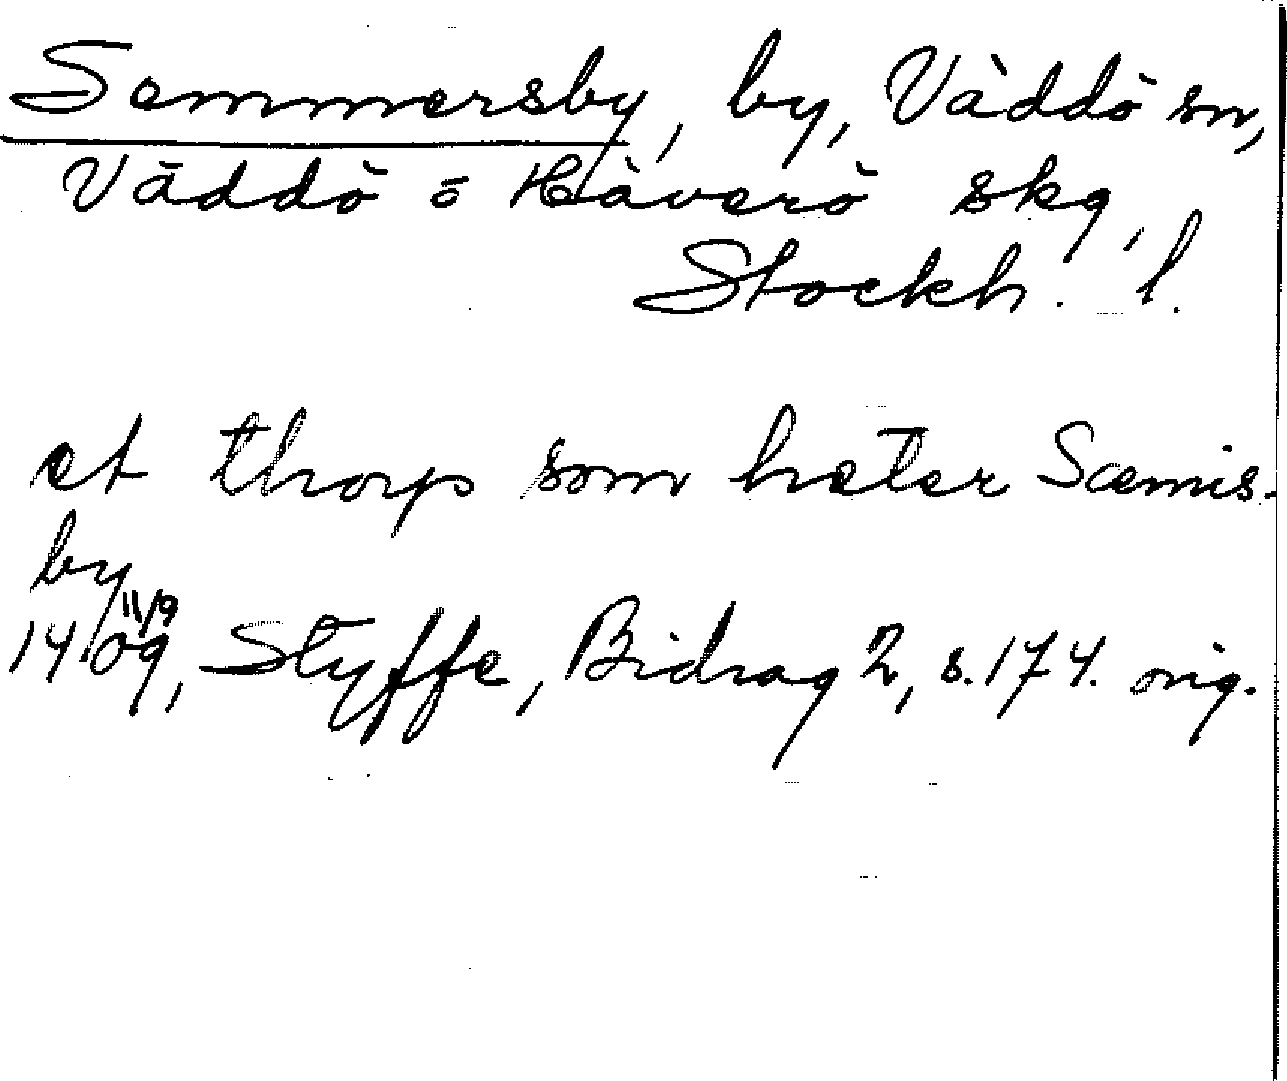 Semmersby, by, Väddö sn,
Väddö o Häverö skg,
Stockh. l.
et thorp som heter Sæmis-
by
11/9
1409, Styffe, Bidrag 2, s. 174. orig.